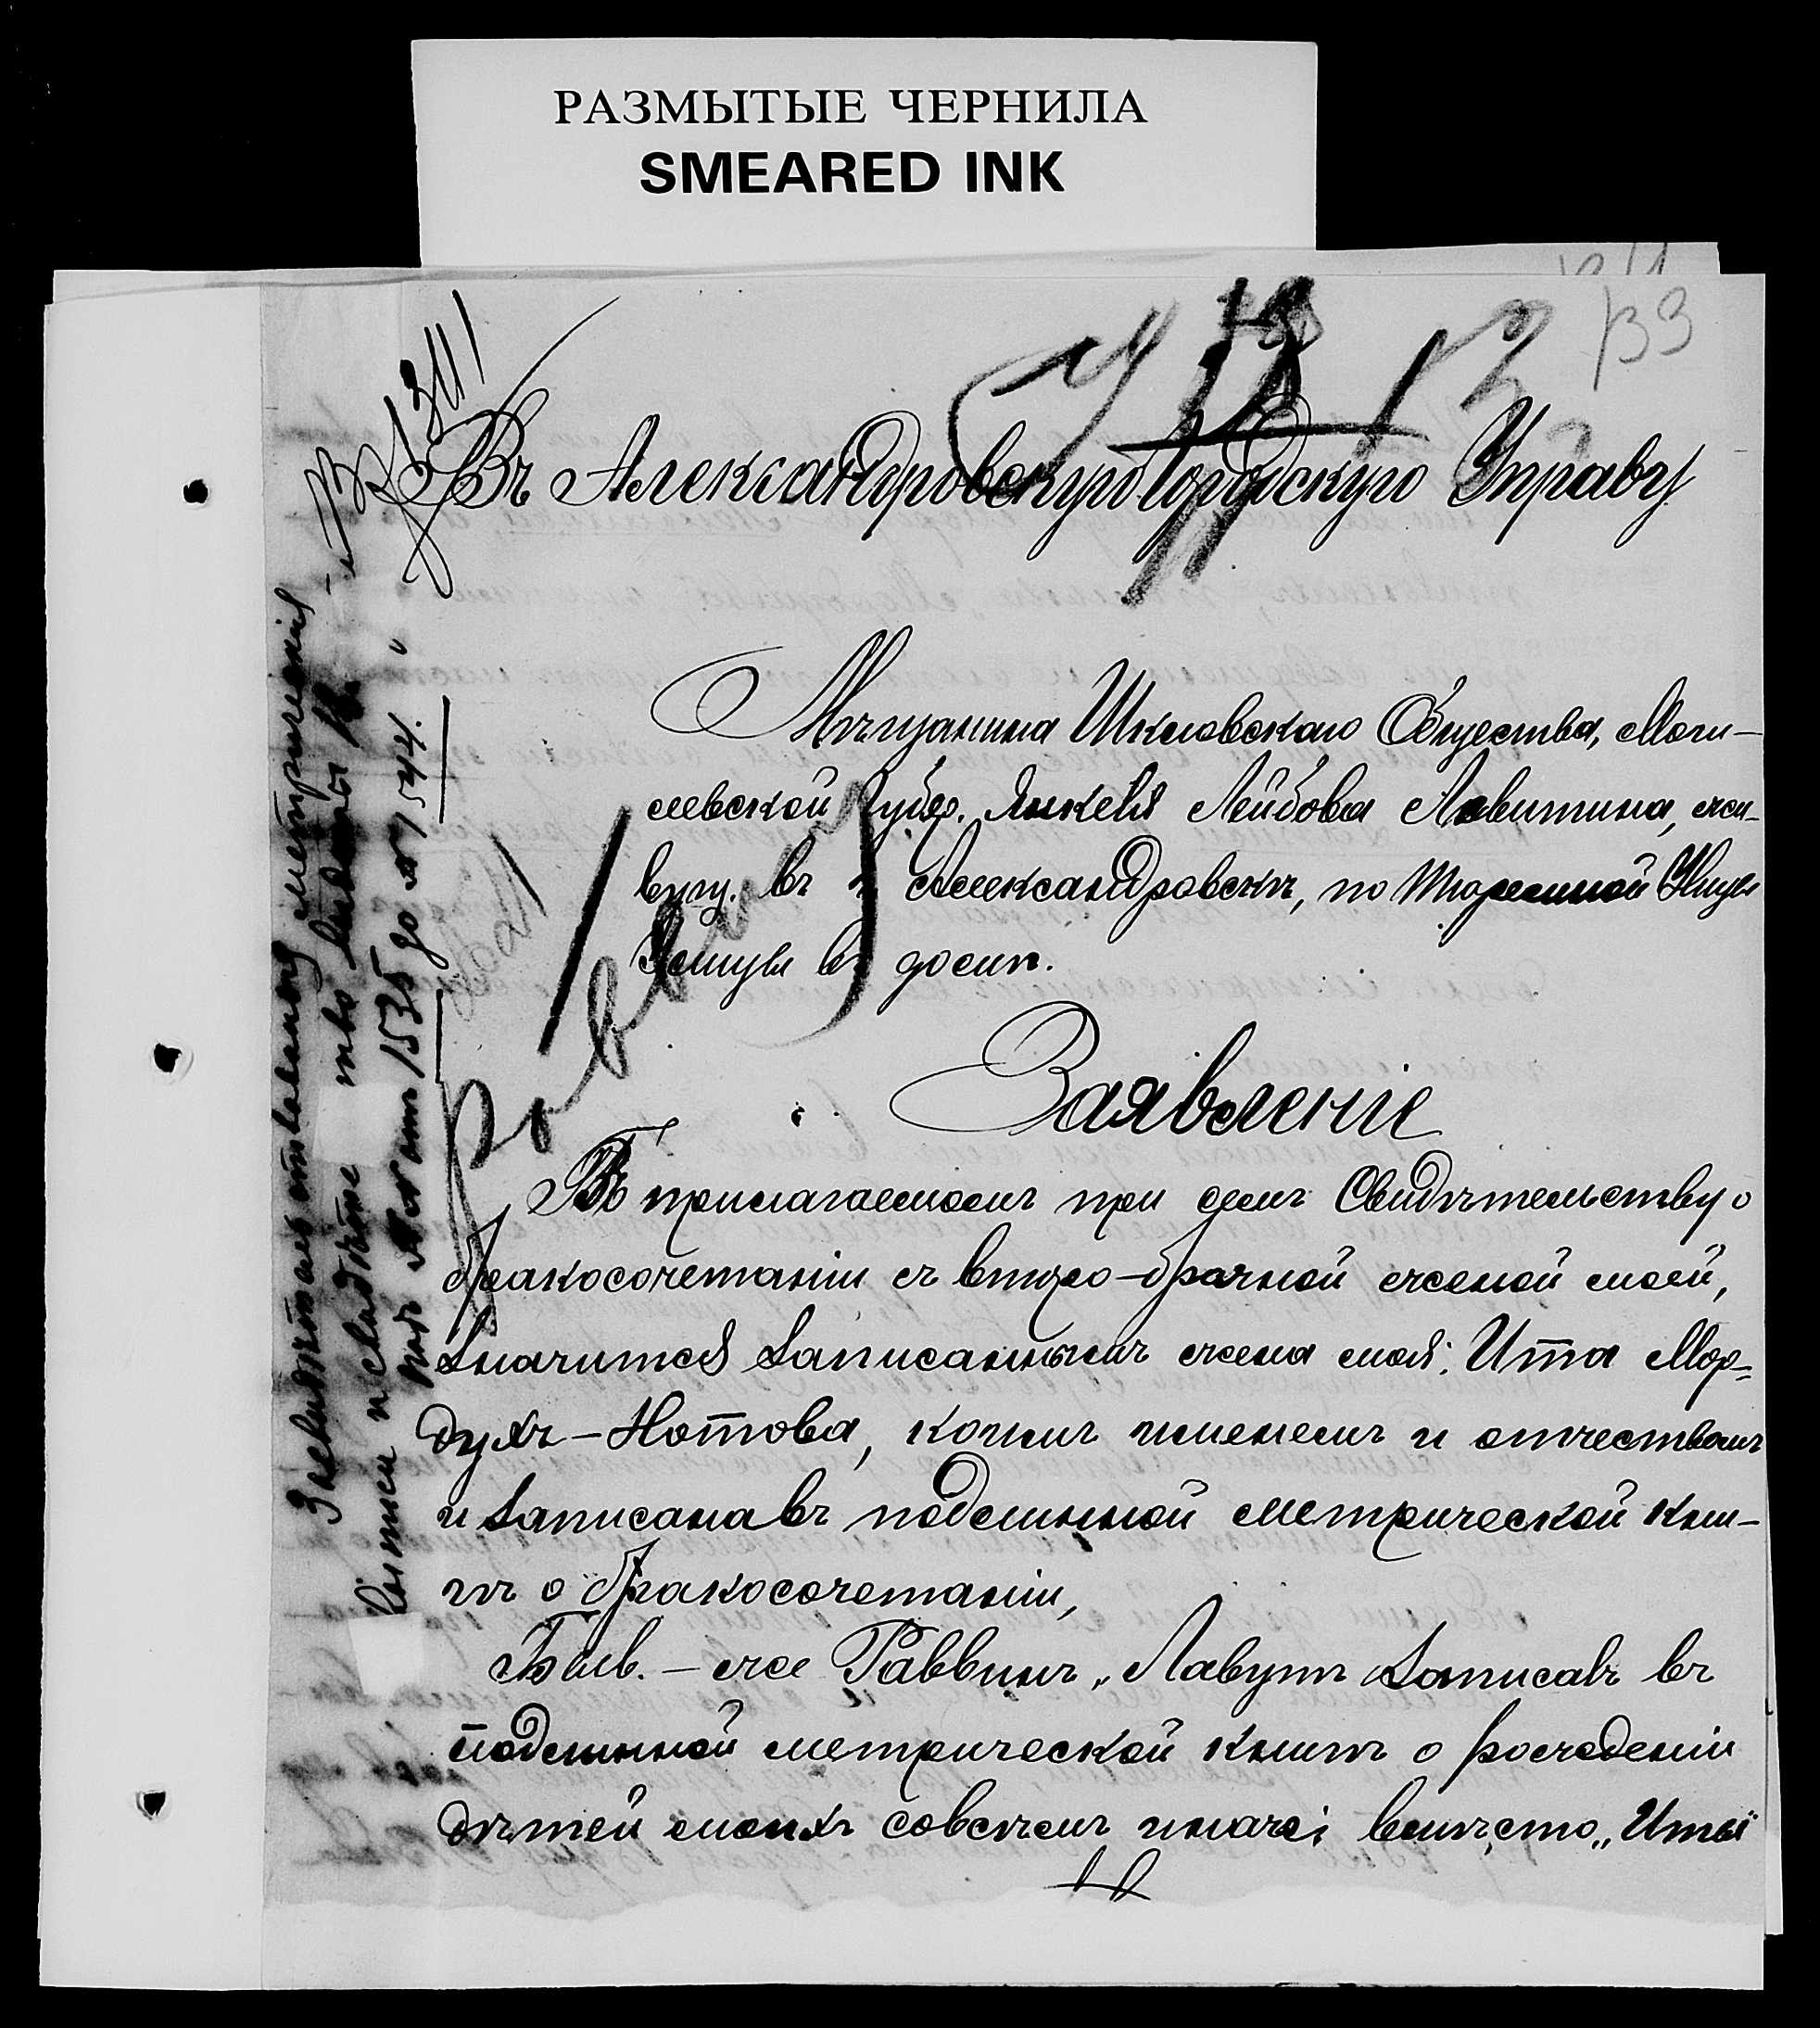 РАЗМЫТЫЕ ЧЕРНИЛА
SMEARED INK
133
Въ Александровскую Городскую Управу
Мѣщанина Шкловскаго Общества, Моги-
левской Губер. Янкеля Лейбова Левитина, жи-
вущ. въ г. Александровскѣ, по Тюремной Улицѣ
въ домѣ.
Заявленіе
Въ прилагаемомъ при семъ Свидѣтельству о
бракосочетаніи съ второ-брачной женой моей,
значится записаннымъ жена моя: Ита Мор-
духъ-Нотова, коимъ именемъ и отчествомъ
и записана въ подлинной метрической кни-
гѣ о бракосочетаніи,
Бывш.-же Раввинъ „Лавутъ записавъ въ
подлинной метрической книгѣ о рожденіи
дѣтей моихъ совсѣмъ иначе; вмѣсто „Иты"
метрическія
свидѣт
№№ от 1535 до № 1544.
Раввину